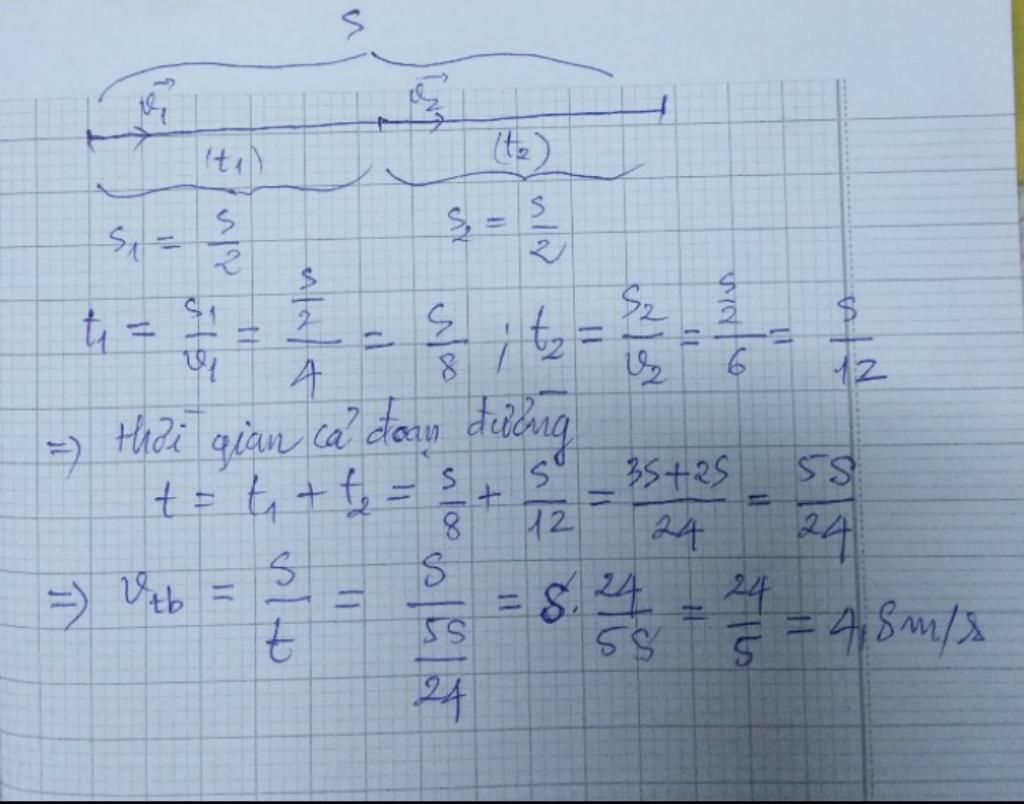 S
v₁→ v₂→
(t₁) (t₂)
S₁ = S/2 S₂ = S/2
t₁ = S₁/v₁ = (S/2)/4 = S/8 ; t₂ = S₂/v₂ = (S/2)/6 = S/12
=> thời gian cả đoạn đường
t = t₁ + t₂ = S/8 + S/12 = (3S+2S)/24 = 5S/24
=> v_tb = S/t = S/(5S/24) = S. 24/5S = 24/5 = 4,8m/s